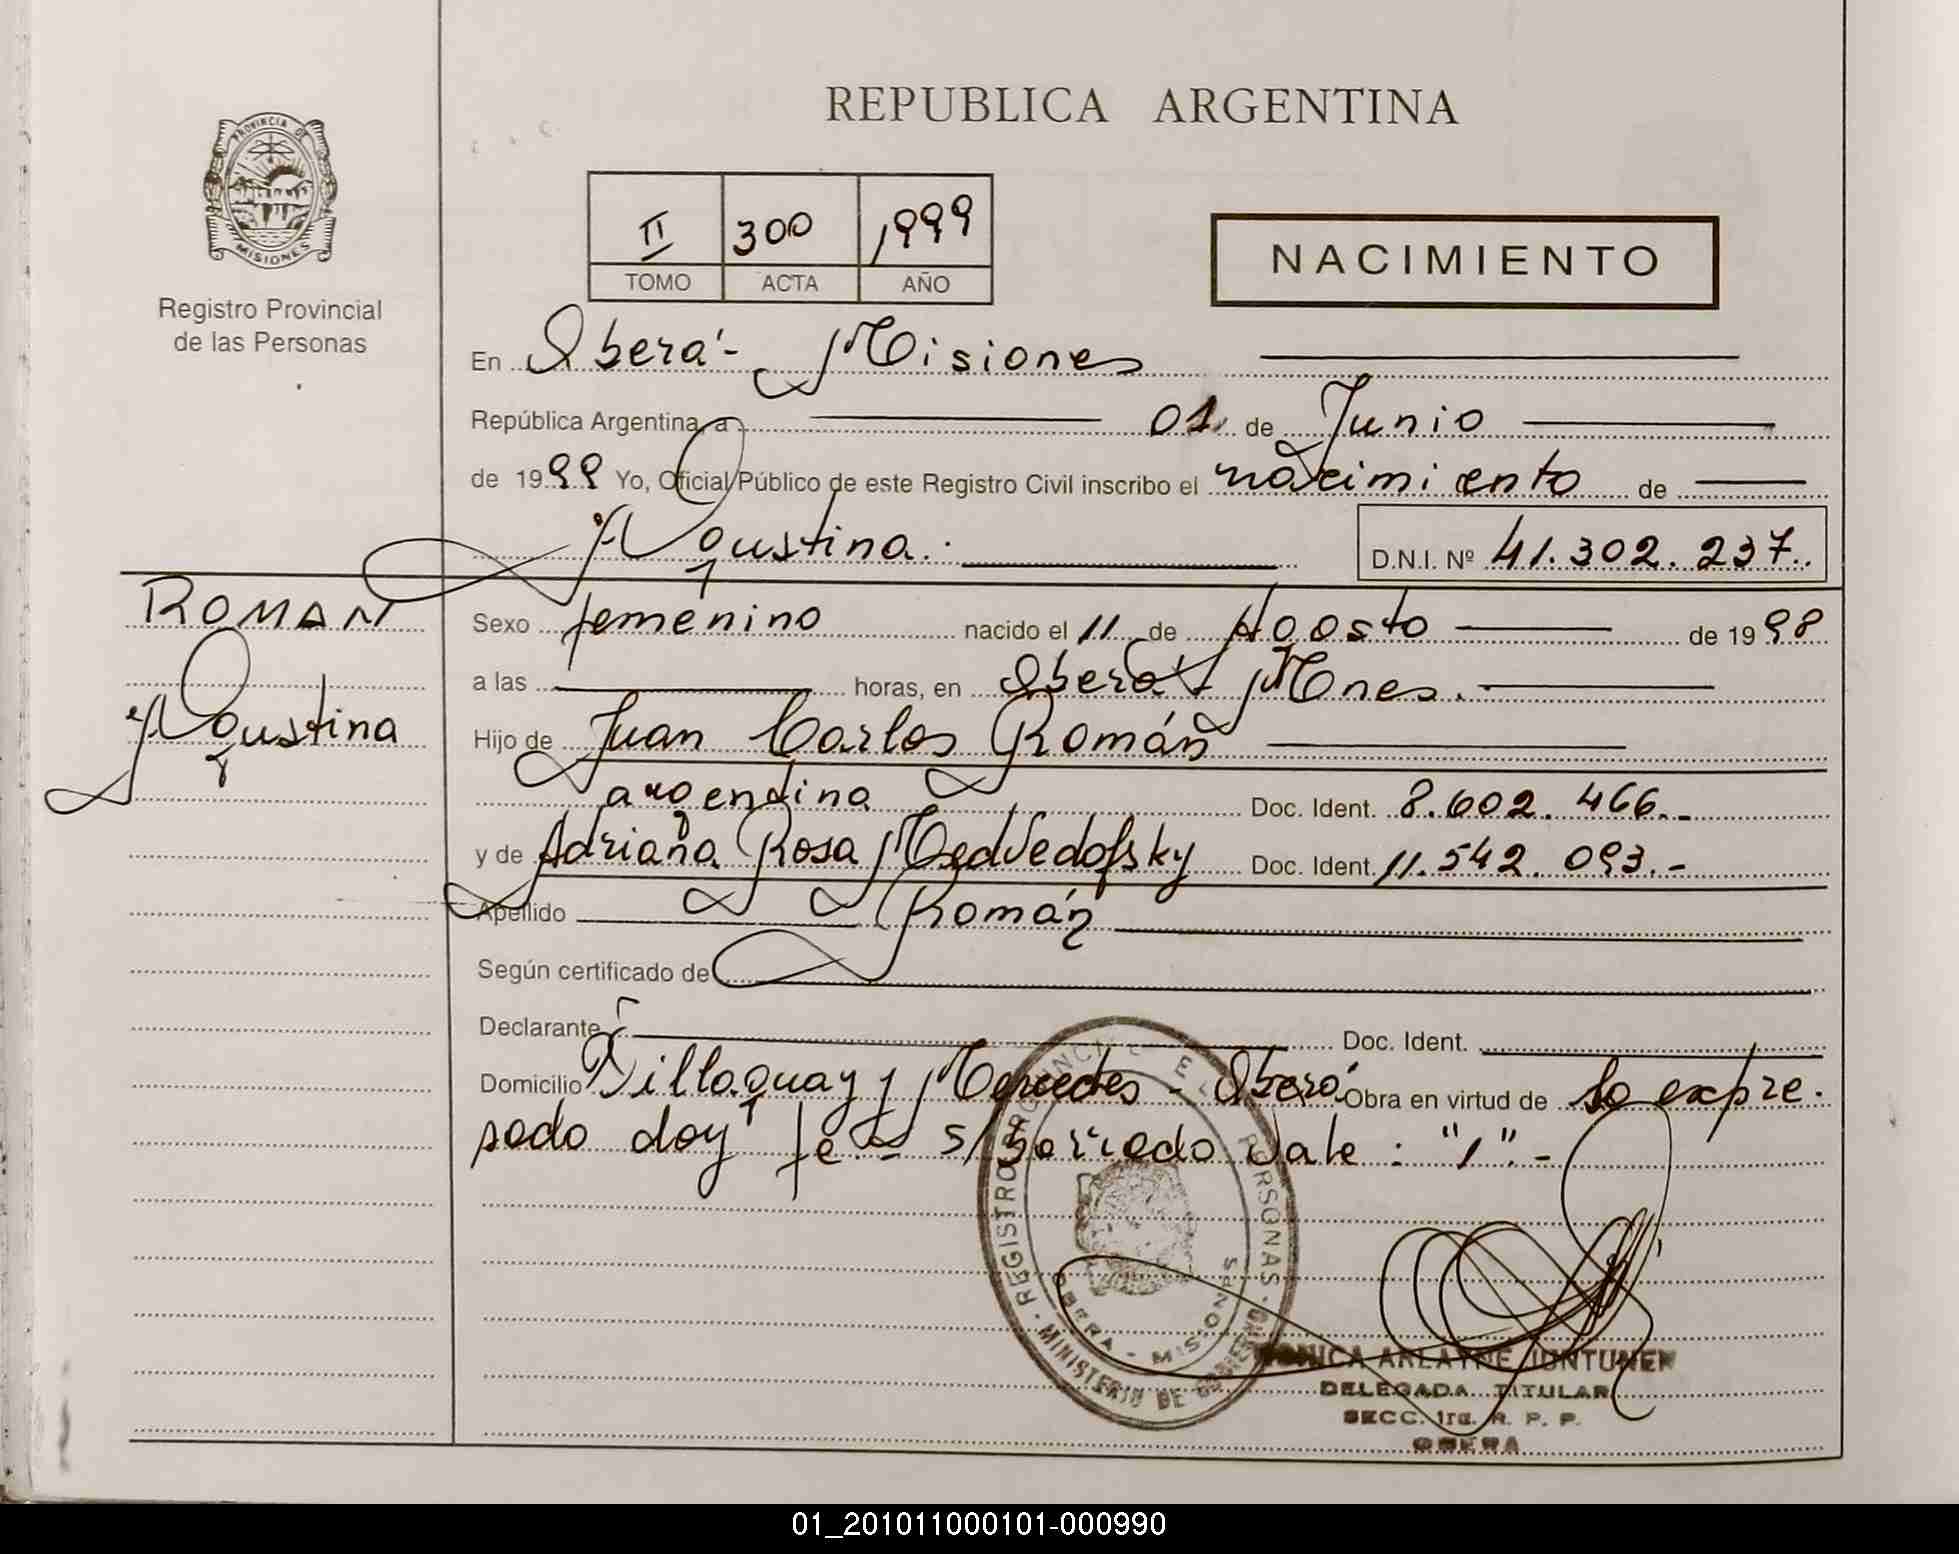 REPUBLICA ARGENTINA
PROVINCIA DE
MISIONES
Registro Provincial
de las Personas
II 300 1999
TOMO ACTA AÑO
NACIMIENTO
En Oberá - Misiones
República Argentina, a 01 de Junio
de 1999 Yo, Oficial Público de este Registro Civil inscribo el nacimiento de
Agustina.
D.N.I. Nº 41.302.237.
ROMAN
Agustina
Sexo femenino nacido el 11 de Agosto de 1998
a las horas, en Oberá - Mnes.
Hijo de Juan Carlos Román
argentina Doc. Ident. 8.602.466.-
y de Adriana Rosa Medvedofsky Doc. Ident. 11.542.093.-
Apellido Román
Según certificado de
Declarante Doc. Ident.
Domicilio Villaguay y Mercedes - Oberá Obra en virtud de lo expre.
sado doy fe.- s/borrado Vale: "1".-
REGISTRO PERSONAS - MINISTERIO DE GOBIERNO
OBERA - MISIONES
MONICA ARLAYNE JUNTUNEN
DELEGADA TITULAR
SECC. 1ra. R. P. P.
OBERA
01_201011000101-000990